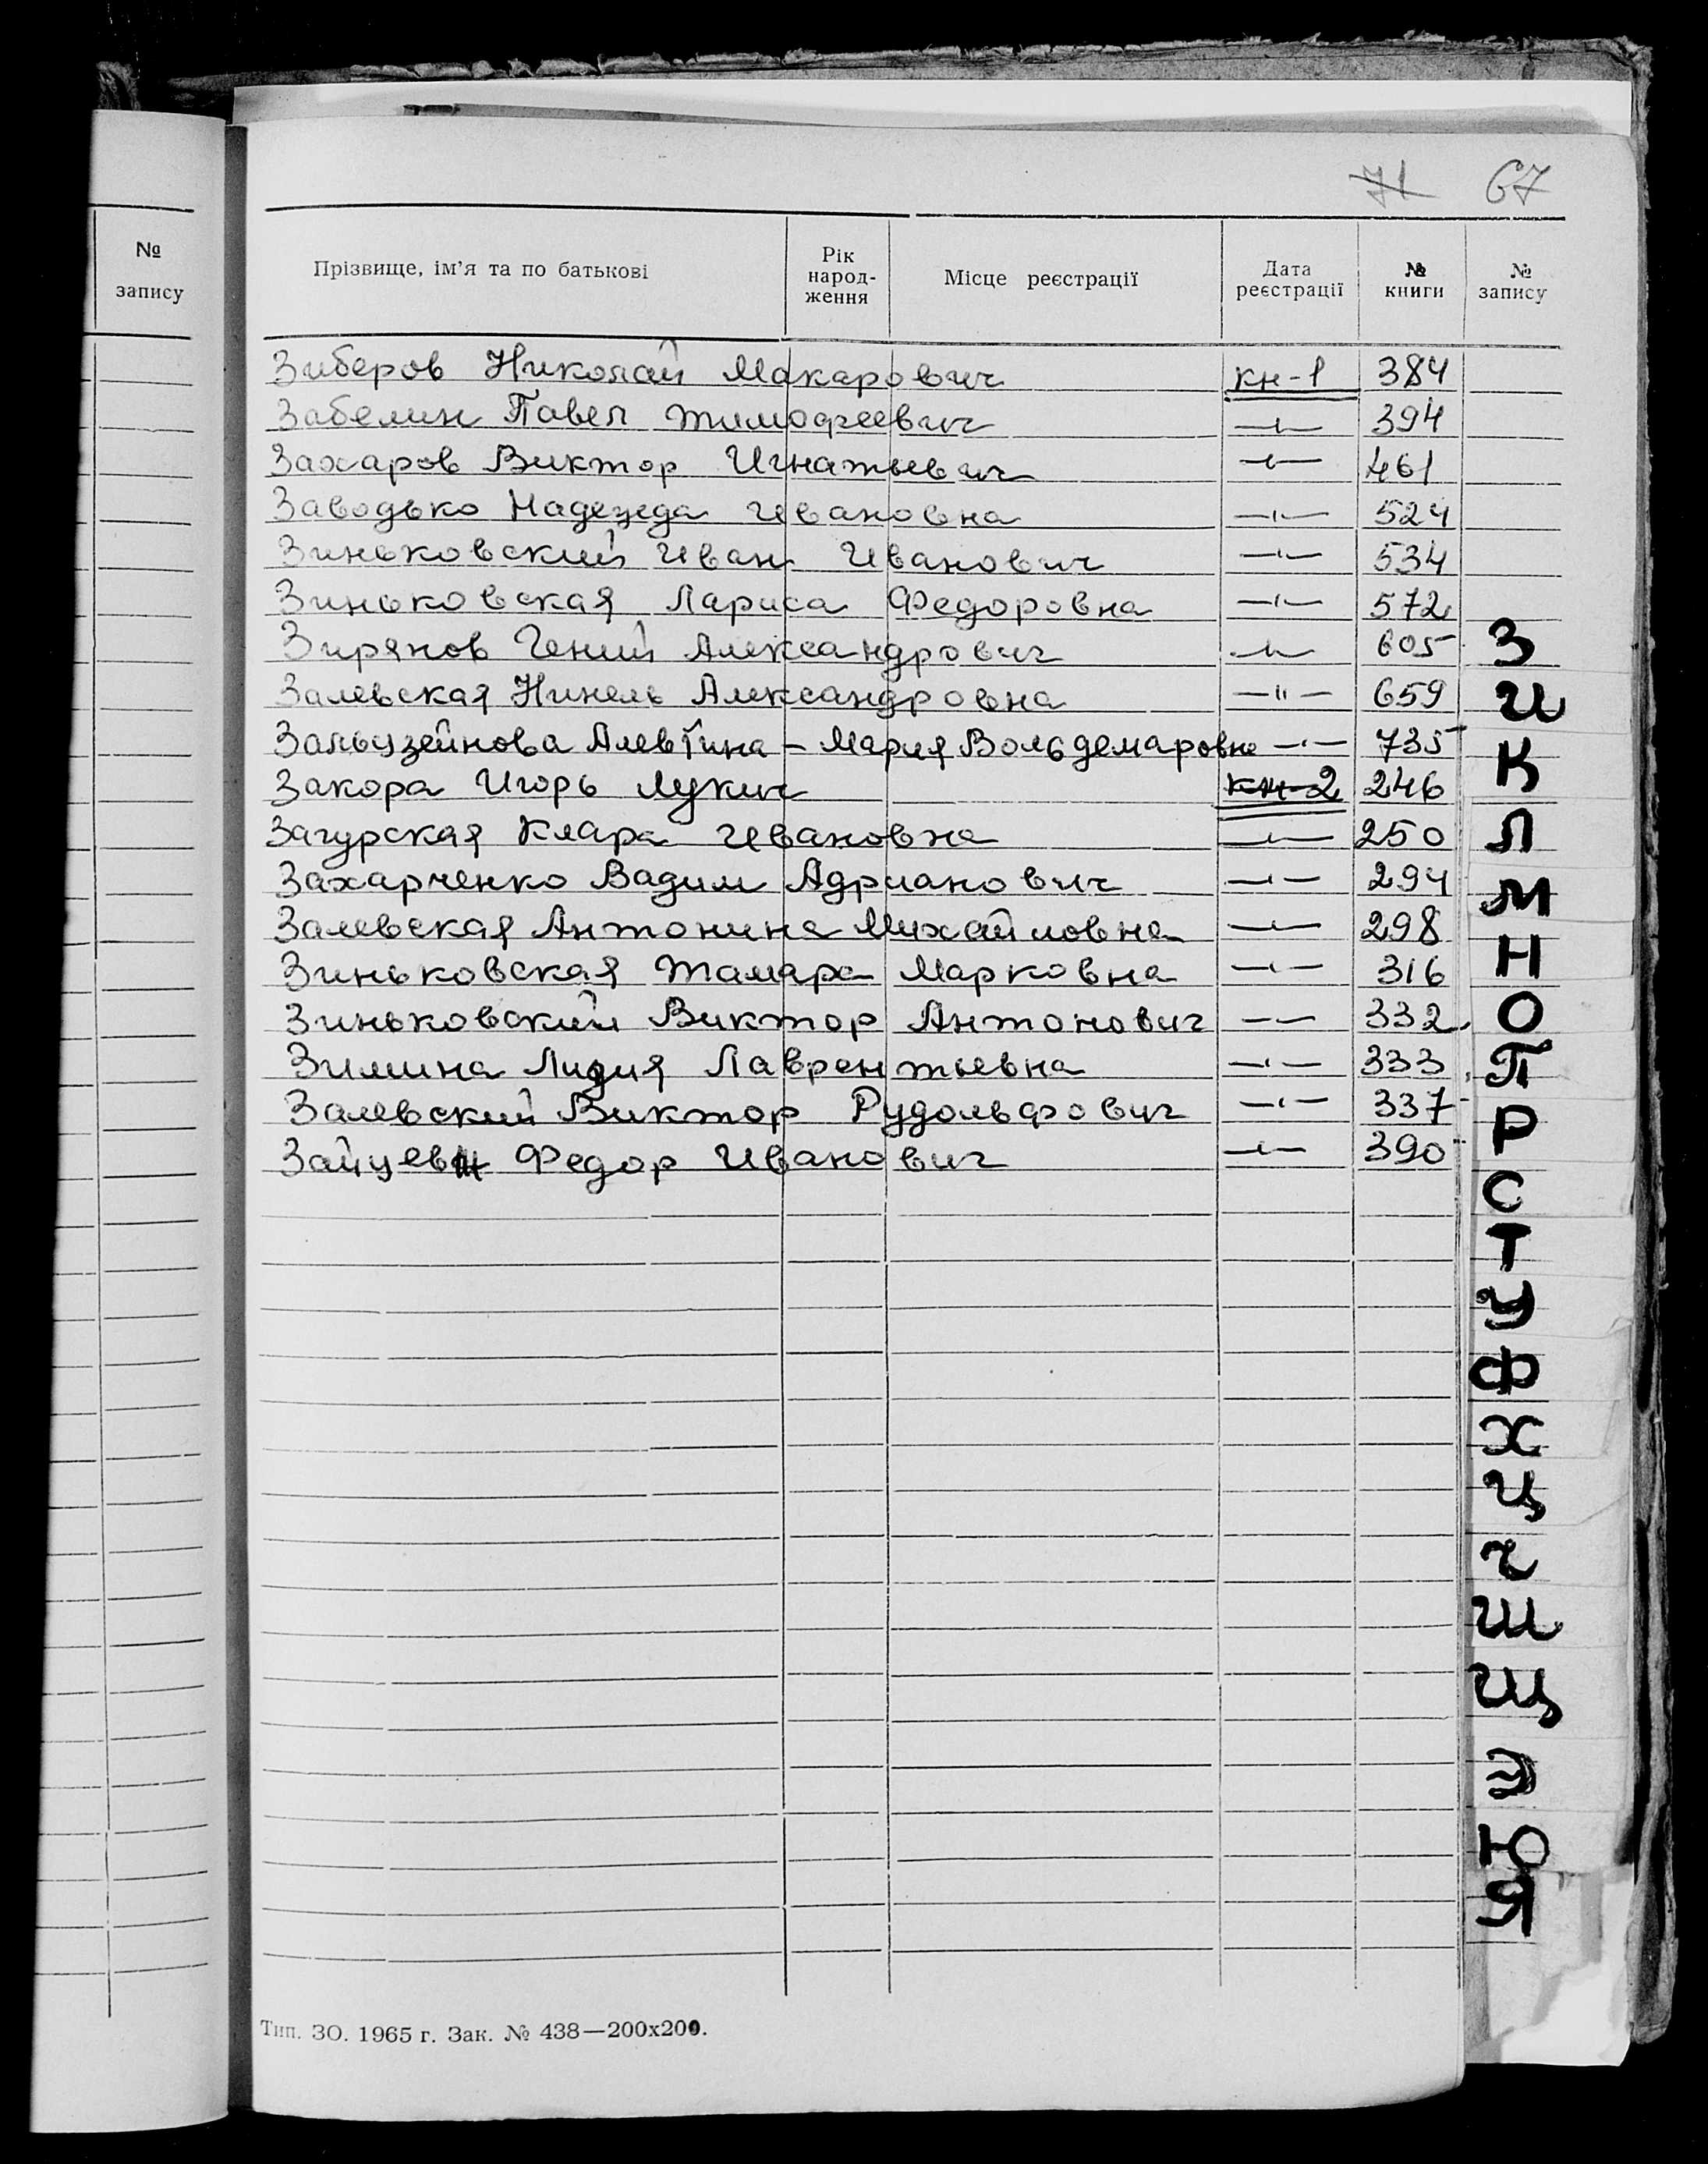 71 67
№ запису
Прізвище, ім'я та по батькові Рік народ- ження Місце реєстрації Дата реєстрації № книги № запису
Зиберов Николай Макарович кн-1 384
Забелин Павел Тимофеевич —"— 394
Захаров Виктор Игнатьевич —"— 461
Заводько Надежда Ивановна —"— 524
Зиньковский Иван Иванович —"— 534
Зиньковская Лариса Федоровна —"— 572
Зирянов Гений Александрович —"— 605
Залевская Нинель Александровна —"— 659
Зальцзейнова Алевтина – Мария Вольдемаровна —"— 735
Закора Игорь Лукич кн-2 246
Загурская Клара Ивановна —"— 250
Захарченко Вадим Адрианович —"— 294
Залевская Антонина Михайловна —"— 298
Зиньковская Тамара Марковна —"— 316
Зиньковский Виктор Антонович —"— 332
Зимина Лидия Лаврентьевна —"— 333
Залевский Виктор Рудольфович —"— 337
Зайцев Федор Иванович —"— 390
З
И
К
Л
М
Н
О
П
Р
С
Т
У
Ф
Х
Ц
Ч
Ш
Щ
Э
Ю
Я
Тип. ЗО. 1965 г. Зак. № 438—200х200.